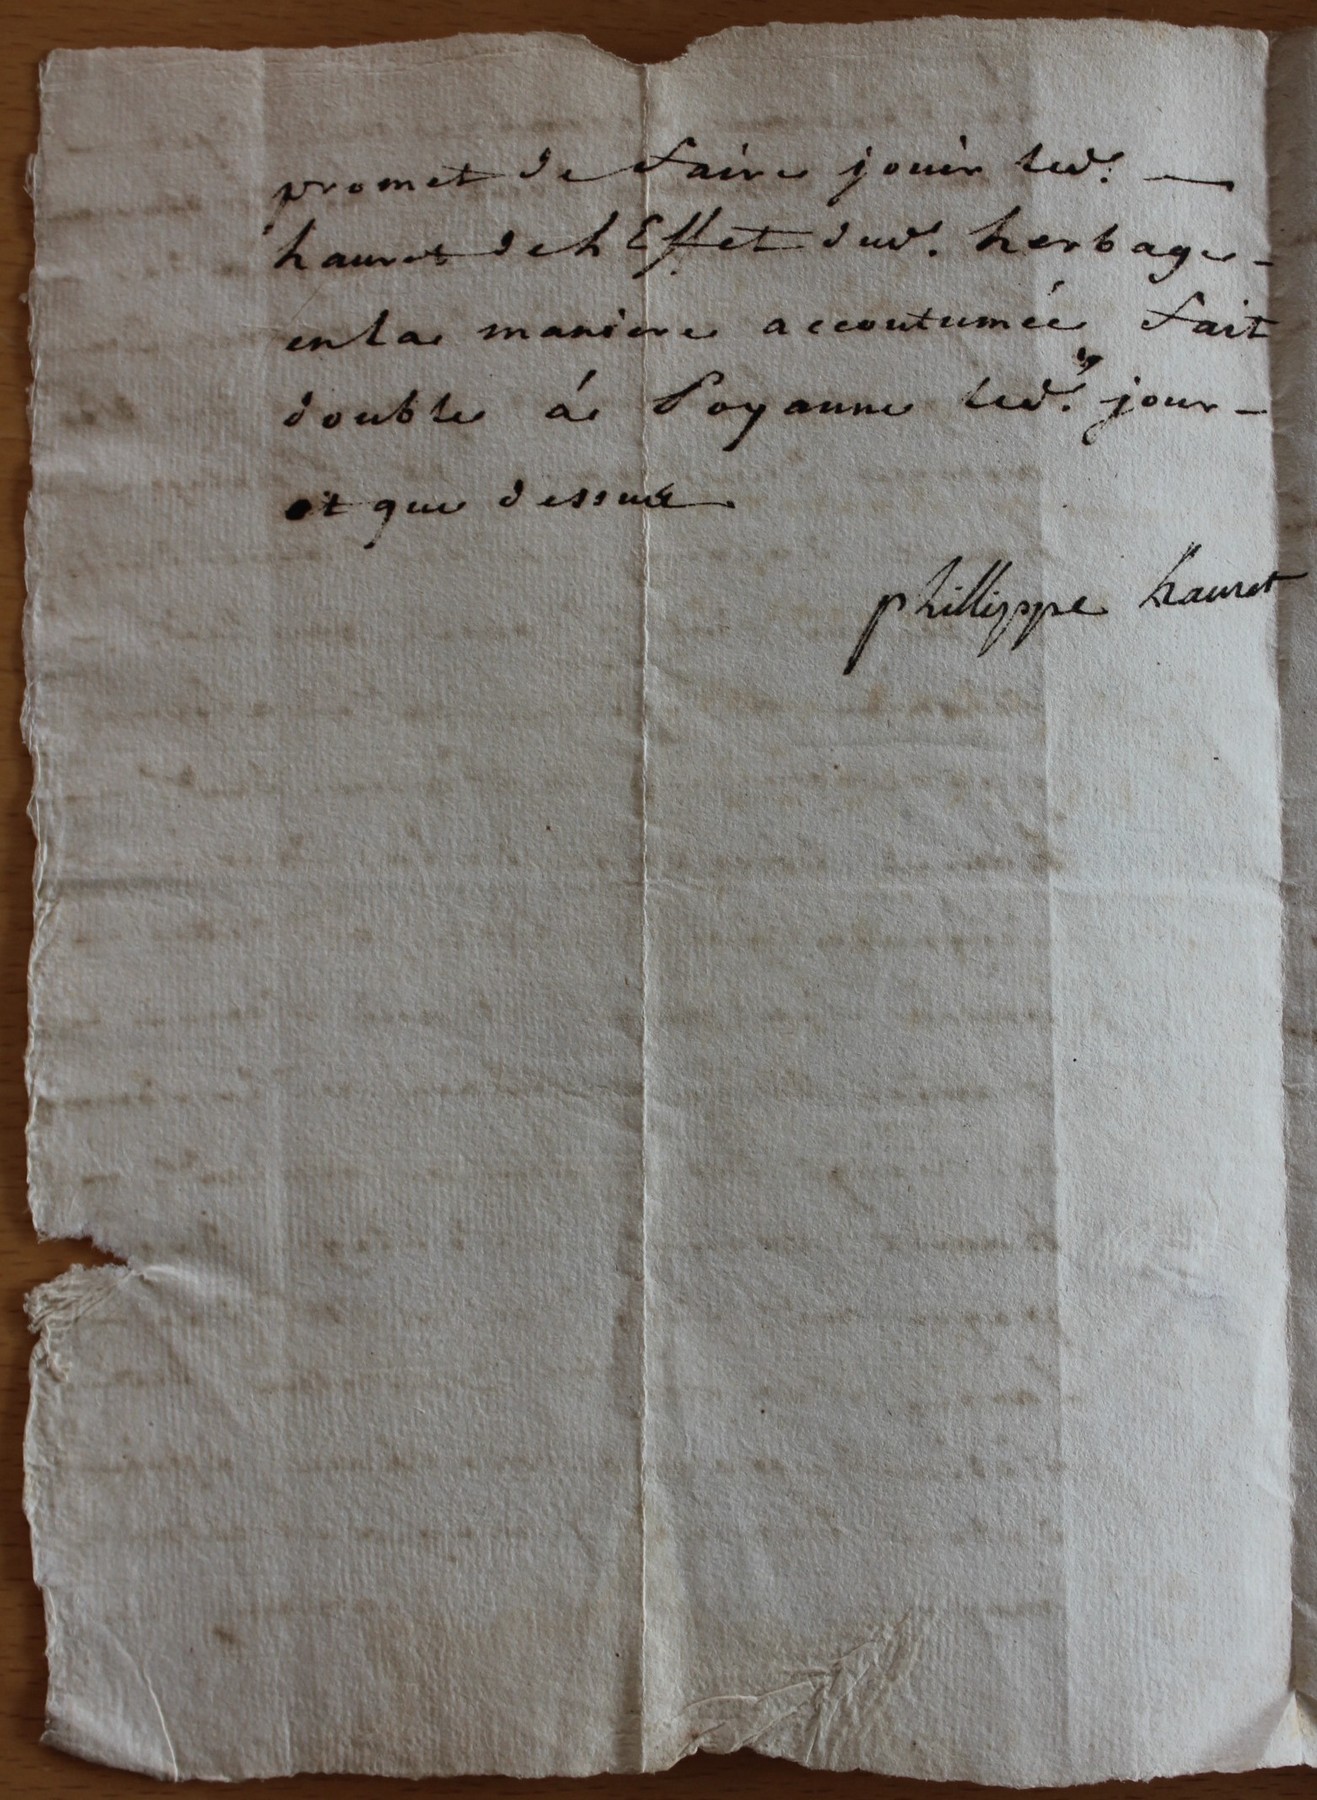 promet de faire jouir led. —
hauret de l Effet dud. herbage -
en la maniere accoutumée fait
double á Poyanne led. jour -
et que dessus
phillippe hauret